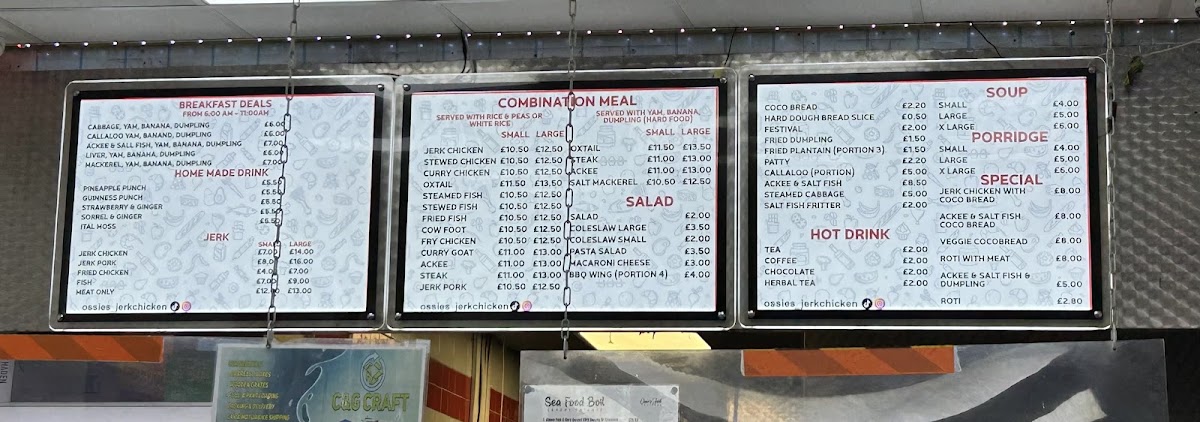 BREAKFAST DEALS
FROM 6:00 AM - 11:00AM
CABBAGE, YAM, BANANA, DUMPLING £6.00
CALLALOO YAM, BANAND, DUMPLING £6.00
ACKEE & SALL FISH, YAM, BANANA, DUMPLING £7.00
LIVER, YAM, BANANA, DUMPLING £6.00
MACKEREL, YAM, BANANA, DUMPLING £7.00
HOME MADE DRINK
PINEAPPLE PUNCH £5.50
GUINNESS PUNCH £5.50
STRAWBERRY & GINGER
SORREL & GINGER £5.50
ITAL MOSS £5.50
JERK
SMALL LARGE
JERK CHICKEN £7.00 £14.00
JERK PORK £8.00 £16.00
FRIED CHICKEN £4.00 £7.00
FISH £7.00 £9.00
MEAT ONLY £13.00
ossies_jerkchicken
COMBINATION MEAL
SERVED WITH RICE & PEAS OR
WHITE RICE
SMALL LARGE
JERK CHICKEN £10.50 £12.50
STEWED CHICKEN £10.50 £12.50
CURRY CHICKEN £10.50 £12.50
OXTAIL £11.50 £13.50
STEAMED FISH £10.50 £12.50
STEWED FISH £10.50 £12.50
FRIED FISH £10.50 £12.50
COW FOOT £10.50 £12.50
FRY CHICKEN £10.50 £12.50
CURRY GOAT £11.00 £13.00
ACKEE £11.00 £13.00
STEAK £11.00 £13.00
JERK PORK £10.50 £12.50
ossies_jerkchicken
SERVED WITH YAM, BANANA,
DUMPLING (HARD FOOD)
SMALL LARGE
OXTAIL £11.50 £13.50
STEAK £11.00 £13.00
ACKEE £11.00 £13.00
SALT MACKEREL £10.50 £12.50
SALAD
SALAD £2.00
COLESLAW LARGE £3.50
COLESLAW SMALL £2.00
PASTA SALAD £3.50
MACARONI CHEESE £3.00
BBQ WING (PORTION 4) £4.00
COCO BREAD £2.20
HARD DOUGH BREAD SLICE £0.50
FESTIVAL £2.00
FRIED DUMPLING £1.50
FRIED PLANTAIN (PORTION 3) £1.50
PATTY £2.20
CALLALOO (PORTION) £5.00
ACKEE & SALT FISH £8.50
STEAMED CABBAGE £5.00
SALT FISH FRITTER £2.00
HOT DRINK
TEA £2.00
COFFEE £2.00
CHOCOLATE £2.00
HERBAL TEA £2.00
ossies_jerkchicken
SOUP
SMALL £4.00
LARGE £5.00
X LARGE £6.00
PORRIDGE
SMALL £4.00
LARGE £5.00
X LARGE £6.00
SPECIAL
JERK CHICKEN WITH £8.00
COCO BREAD
ACKEE & SALT FISH £8.00
COCO BREAD
VEGGIE COCOBREAD £8.00
ROTI WITH MEAT £8.00
ACKEE & SALT FISH &
DUMPLING £5.00
ROTI £2.80
C&G CRAFT
Sea Food Boil